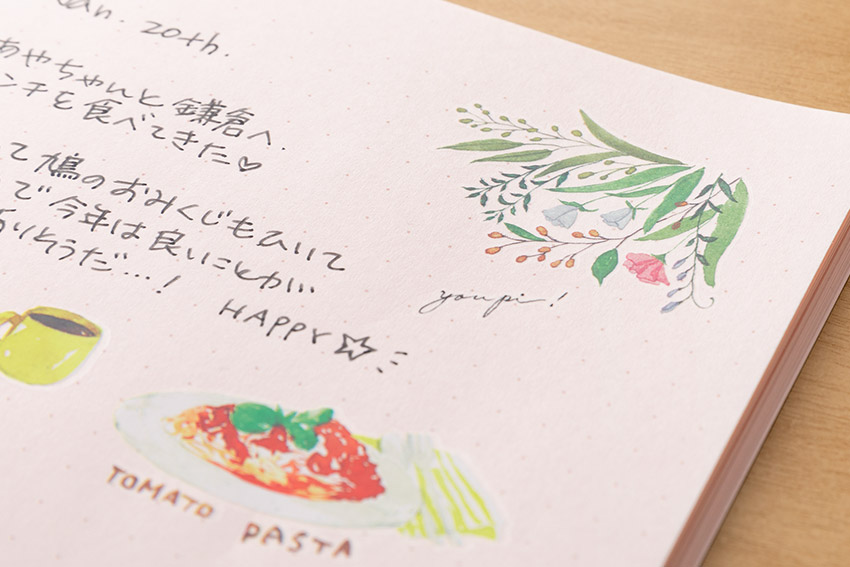 an. 20th.
あやちゃんと鎌倉へ.
ンチを食べてきた♡
て鳩のおみくじもひいて
で今年は良いことが
ありそうだ…!
HAPPY☆
youpi!
TOMATO PASTA